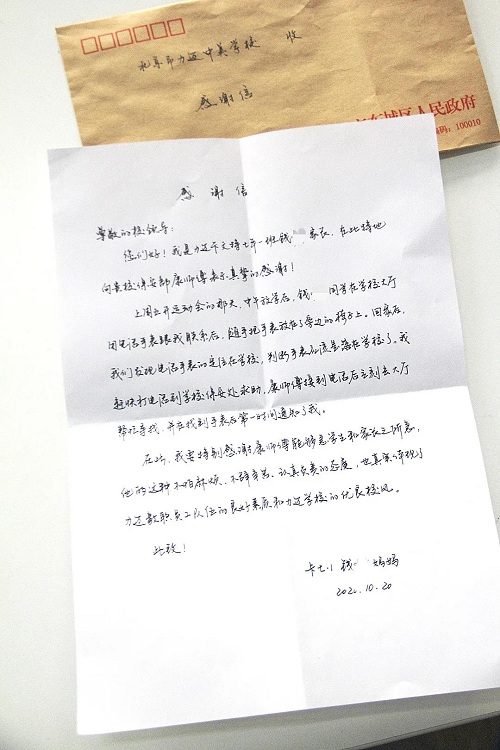 北京市力迈中美学校 收
感谢信
区人民政府
100010
感谢信
尊敬的校领导：
您们好！我是力迈卡文特七年一班钱 家长，在此特地
向贵校保安部康师傅表示真挚的感谢！
上周五开运动会的那天，中午放学后，钱 同学在学校大厅
用电话手表跟我联系后，随手把手表放在了旁边的椅子上。回家后，
我们发现电话手表的定位在学校，判断手表应该是落在学校了。我
赶快打电话到学校保安处求助，康师傅接到电话后立刻去大厅
帮忙寻找，并在找到手表后第一时间通知了我。
在此，我要特别感谢康师傅能够急学生和家长之所急，
他的这种不怕麻烦、不辞辛苦、认真负责的态度，也真实体现了
力迈教职员工队伍的良好素质和力迈学校的优良校风。
此致！
卡七.1 钱 妈妈
10.20